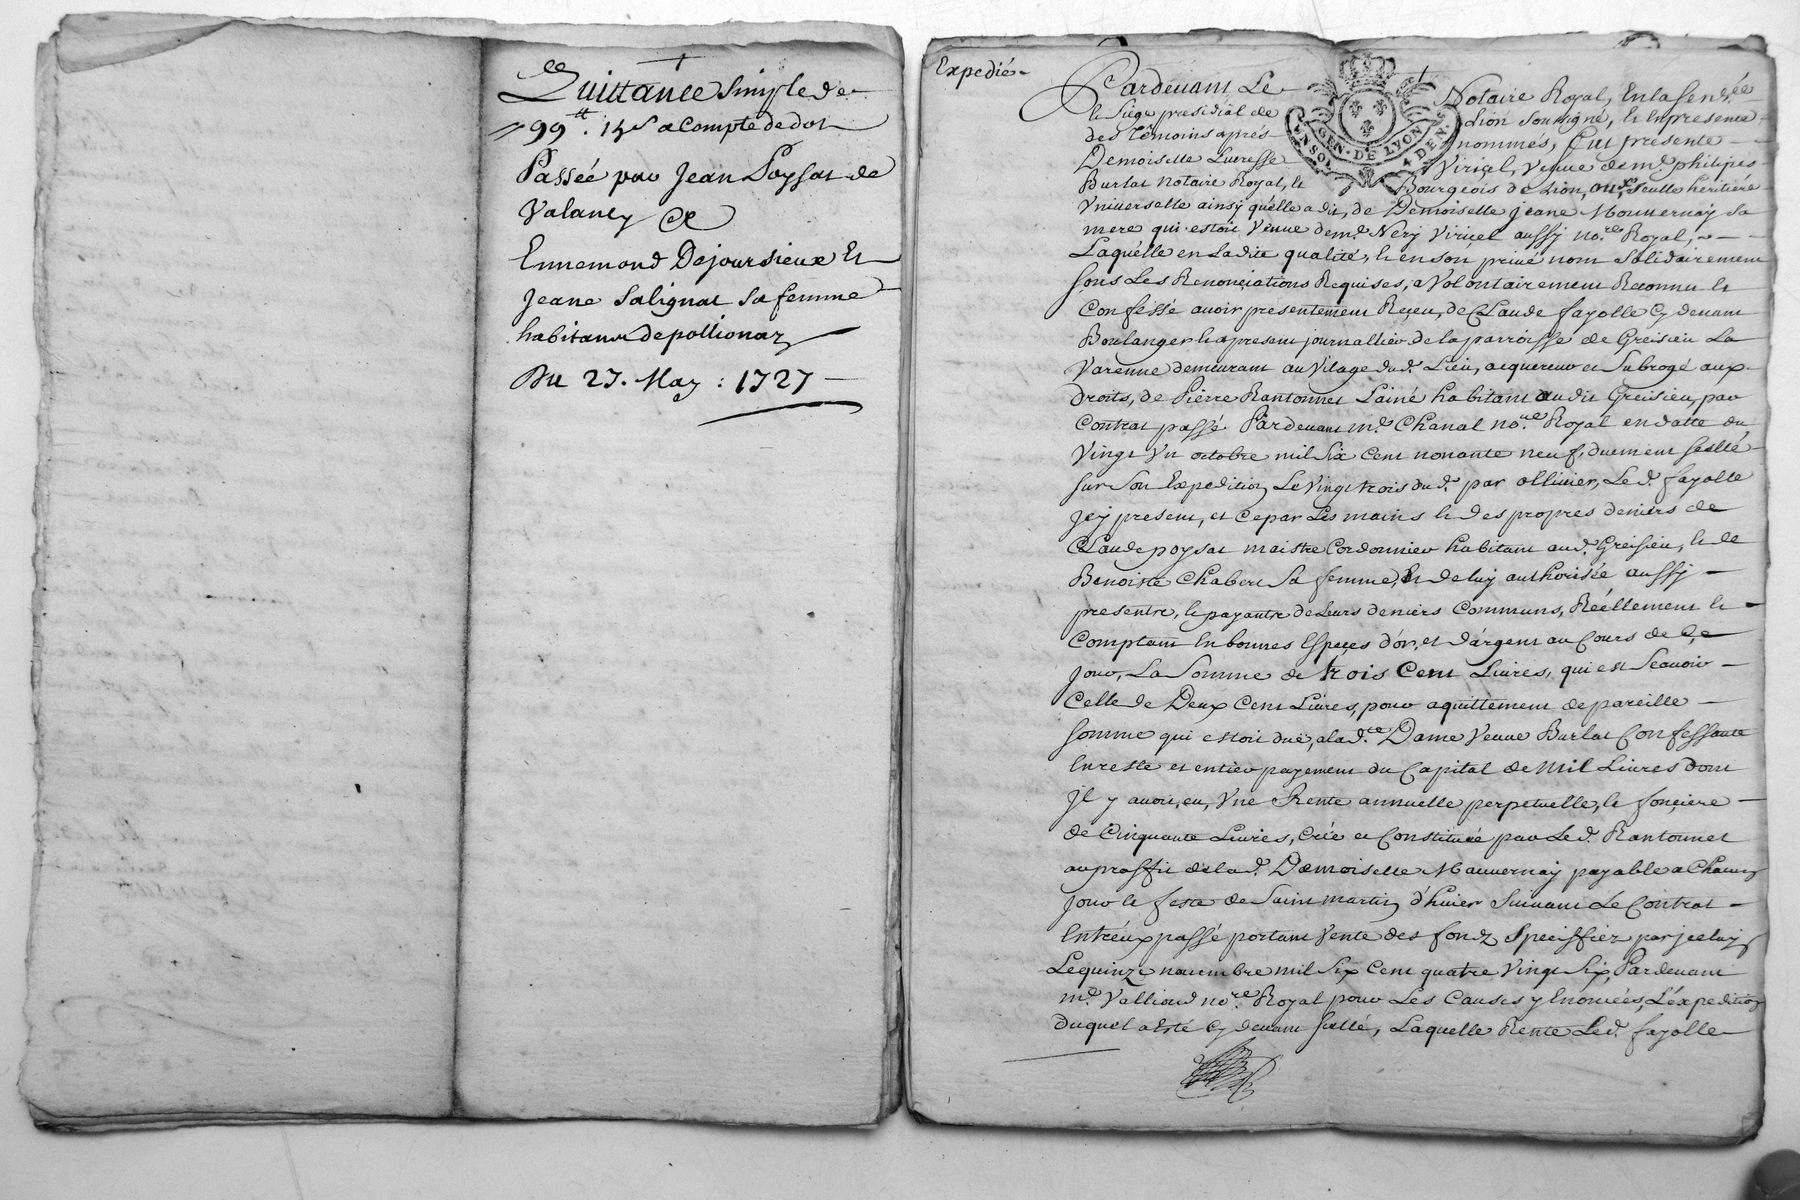 Quittance simple de
99ᵗᵗ. 15ˢ a Compte de dot
Passée par Jean Poysat de
Valancy &
Ennemond Dejoursieux et
Jeane Salignat sa femme
habitans de pollionay
Du 27. May : 1727
Expedié
Pardevant Le Notaire Royal, En la Senéᵉᵉ
& Siège presidial de Lion soussigné, & en presence
des témoins aprés nommés, fut presente
Demoiselle Lucresse Viriçel, veuve de mᵉ. philipes
Burlat Notaire Royal, & Bourgeois de Lion, seulle heritiére
Vniverselle ainsy qu'elle a dit, de Demoiselle Jeane Mouvernay sa
mere qui estoit Veuve de mᵉ. Nery Viriçel aussy noʳᵉ Royal,
Laquélle en Ladite qualité, & en son privé nom Solidairement
sous Les Renonçiations Requises, a Volontairement Reconnu &
Confessé avoir presentement Reçeu, de Claude fayolle Cy devant
Boulanger & a present journallier de la parroisse de Greisieu La
Varenne demeurant au Vilage dud. Lieu, acquereur et Subrogé aux
droits, de Pierre Rantonnet L'ainé habitant audit Greisieu, par
Contrat passé Pardevant mᵉ. Chanal noʳᵉ Royal en datte du
Vingt Vn octobre mil Six Cent nonante neuf, duement scellé
sur Son Expedition Le Vingt trois dud. par ollivier, Led. fayolle
Jcy present, et Ce par Les mains & des propres deniers de
Claude poysat maistre Cordonnier habitant aud. Greisieu, & de
Benoiste Chabert Sa femme, Et de luy authorisée aussy
presente, & payantz de Leurs deniers Communs, Réellement &
Comptant En bonnes Espeçes d'or, et d'argent au Cours de Ce
jour, La Somme de trois Cent Livres, qui est Scavoir
Celle de Deux Cent Livres, pour aquittement de pareille
somme qui estoit düe, a lad.ᶜᵉ Dame Veuve Burlat Confessante
En reste et entier payement du Capital de Mil Livres dont
Jl y avoit, eu, Vne Rente annuelle perpetuelle, & fonçiere
de Cinquante Livres, Crée et Constituée par Led. Rantonnet
au proffit de lad. Demoiselle Mauvernay payable a Chacun
Jour & feste de Saint martin d'hiver Suivant Le Contrat
Entréux passé portant Vente des fondz Speciffiez par jceluy
Le quinze novembre mil Six Cent quatre Vingt Six, Pardevant
mᵉ. Valliond noʳᵉ Royal pour Les Causes y Enoncées, L'éxpedition
duquel a Esté Cy devant scellé, Laquelle Rente Led. fayolle
GEN. DE LYON